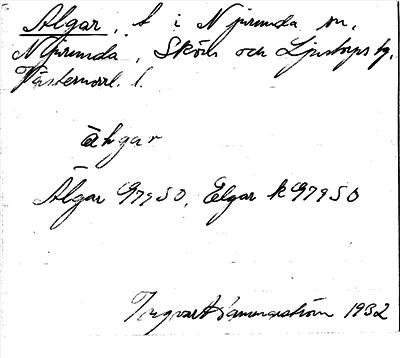 Älgar, t i Njurunda sn,
Njurunda, Sköns och Ljustorps tg,
Västernorrl. l.
ähgar
Älgar G7950, Elgar k G7950
Ingvar Hammarström 1932